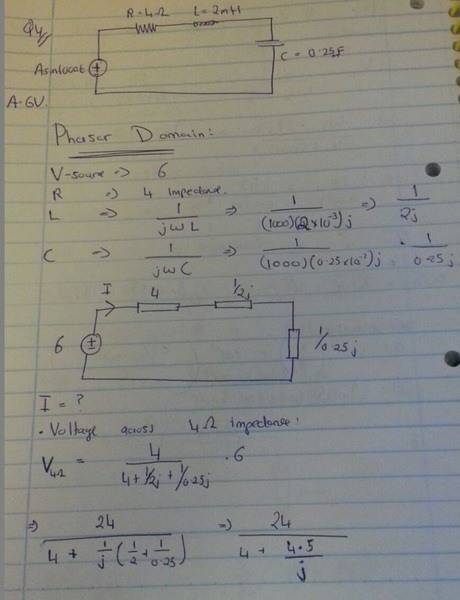 Q4,
R=4Ω L=2mH
C = 0.25F
Asin1000t
A=6V.
Phasor Domain:
V-source => 6
R => 4 Impedance.
L => 1/jωL => 1/(1000)(2×10⁻³)j => 1/2j
C => 1/jωC => 1/(1000)(0.25×10⁻³)j • 1/0.25j
I 4 1/2j
6 1/0.25j
I = ?
• Voltage across 4Ω impedance:
V4Ω = 4/(4+1/2j+1/0.25j) .6
=> 24/(4 + 1/j(1/2+1/0.25)) => 24/(4 + 4.5/j)